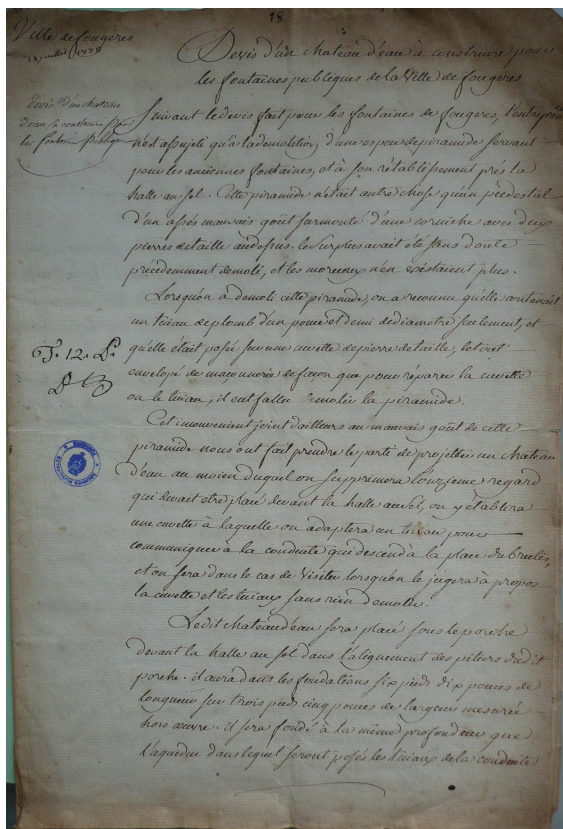 18
Ville de fougeres
18 juillet 1778
Devis d'un chateau d'eau à construire pour
les fontaines publiques de la Ville de fougeres
devis d'un chateau
d'eau à construire pour
les fontaines publiques
Suivant le devis fait pour les fontaines de fougeres, l'entrepreneur
n'est assujeti qu'à la demolition d'une espece de piramide servant
pour les anciennes fontaines, et à son rétablissement prés la
halle au sel. Cette piramide n'était autre chose qu'un piedestal
d'un assés mauvais goût surmonté d'une corniche avec deux
pierres de taille au dessus. le Surplus avait été sans doute
précédemment demoli, et les morceaux n'en existaient plus.
Lorsqu'on a demoli cette piramide, on a reconnu qu'elle contenait
un tuiau de plomb d'un pouce et demi de diametre seulement, et
qu'elle était posée sur une cuvette de pierre de taille, le tout
envelopé de maçonnerie de facon que pour réparer la cuvette
ou le tuiau, il eut fallu demolir la piramide.
F. 12. L.
Cet inconvenient joint d'ailleurs au mauvais goût de cette
piramide nous ont fait prendre le parti de projetter un chateau
d'eau au moien duquel on supprimera l'onzieme regard
qui devait etre placé devant la halle au sel, on y établira
une cuvette à laquelle on adaptera un tuiau pour
communiquer à la conduite qui descend à la place du brulés,
et on sera dans le cas de Visiter lorsqu'on le jugera à propos
la cuvette et les tuiaux sans rien demolir.
Ledit chateau d'eau sera placé sous le porche
devant la halle au sel dans l'alignement des piliers dudit
porche. il aura dans les fondations six pieds dix pouces de
longueur sur trois pieds cinq pouces de largeur mesurée
hors œuvre. il sera fondé à la même profondeur que
l'aqueduc dans lequel seront posés les tuiaux de la conduite